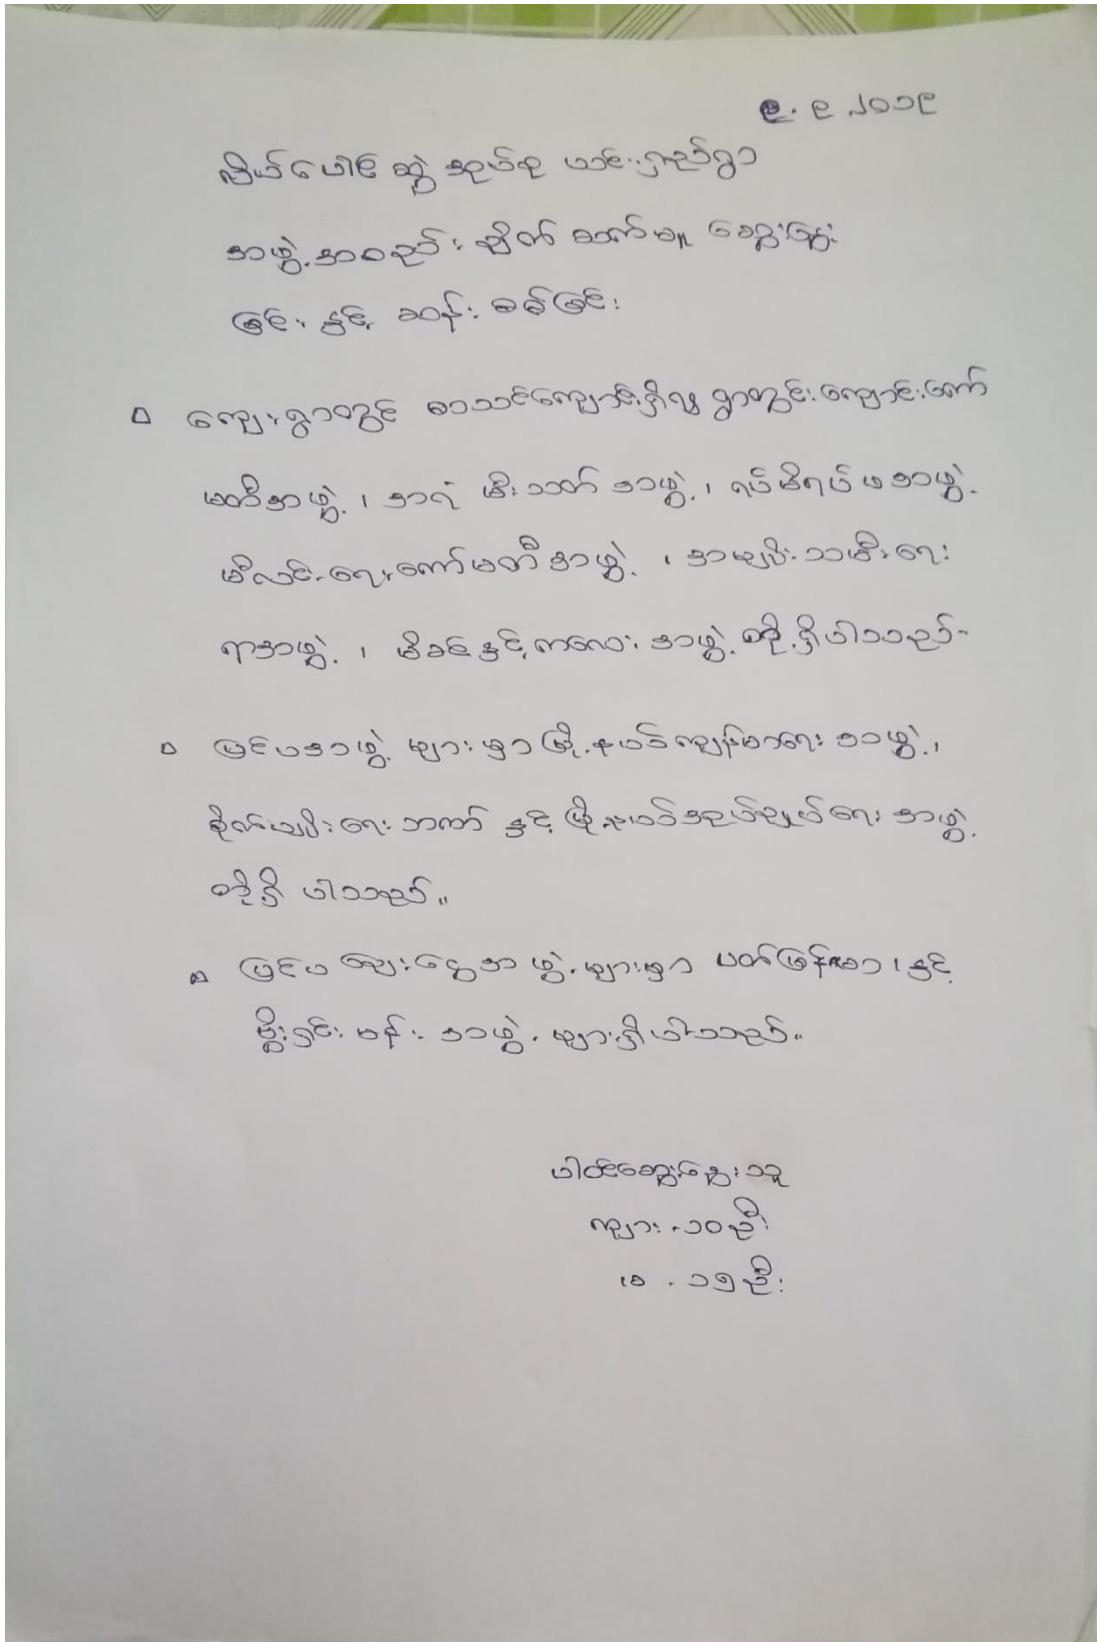 ၉. ၉ ၂၀၁၉
လိပ်ပေါင်ဆွဲ အုပ်စု ယင်းရှည်ရွာ
အဖွဲ့အစည်း ချိတ် ဆက်မှု ဆွေးနွေး
ခြင်း နှင့် ဆန်း စစ်ခြင်း
ကျေးရွာတွင် စာသင်ကျောင်းရှိလျှ ရွာတွင်းကျောင်းကော်
မတီအဖွဲ့ ၊ အရံ မီးသတ် အဖွဲ့ ၊ ရပ်မိရပ်ဖအဖွဲ့
မီးလင်းရေးကော်မတီ အဖွဲ့ ၊ အမျိုးသမီးရေး
ရာအဖွဲ့ ၊ မိခင်နှင့်ကလေး အဖွဲ့ တို့ရှိပါသည်။
ပြင်ပအဖွဲ့ များမှာ မြို့နယ်ကျန်းမာရေး အဖွဲ့ ၊
စိုက်ပျိုးရေးဘဏ် နှင့် မြို့နယ်အုပ်ချုပ်ရေး အဖွဲ့
တို့ရှိ ပါသည်။
ပြင်ပ ချေးငွေအဖွဲ့များမှာ ပတ်ဖြန်မာ ၊ နှင့်
မိုးရှင်းမန်း အဖွဲ့ များရှိပါသည်။
ပါဝင်ဆွေးနွေးသူ
ကျား - ၁၀ ဦး
မ - ၁၅ ဦး